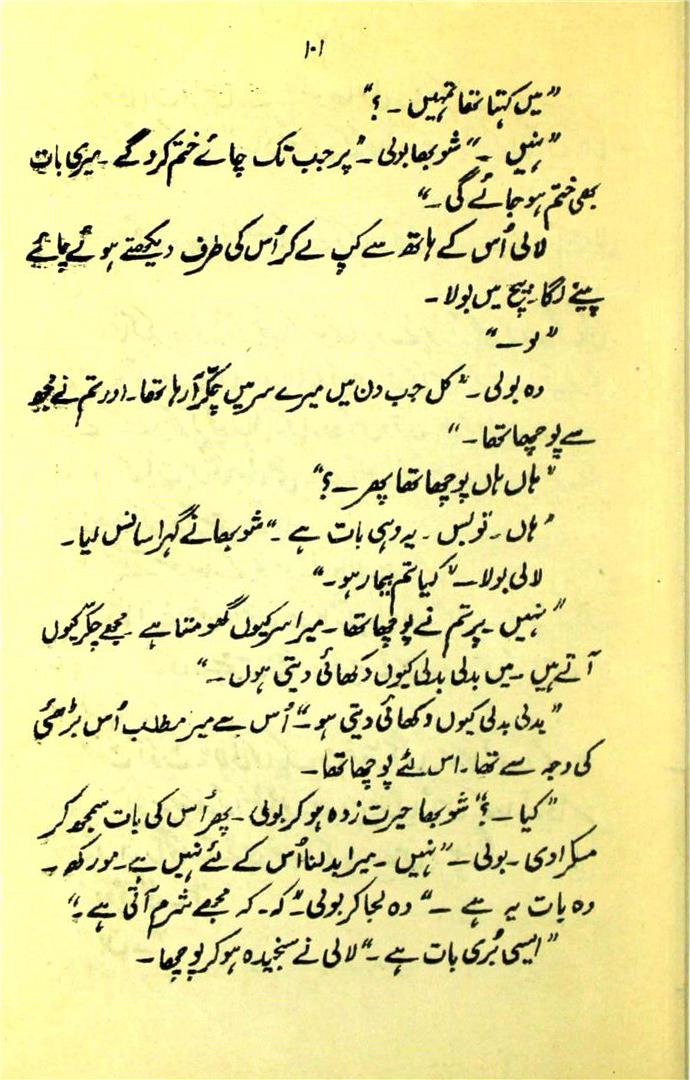 ۱۰۱
"میں کہتا تھا تمہیں ۔ ؟"
"نہیں ۔" شوبھا بولی ۔ "پر جب تک چائے ختم کرو گے ۔ میری بات
بھی ختم ہو جائے گی ۔"
لالی اُس کے ہاتھ سے کپ لے کر اُس کی طرف دیکھتے ہوئے چائے
پینے لگا ۔ بیچ میں بولا ۔
"لو ۔"
وہ بولی ۔ "کل جب دن میں میرے سر میں چکّر آ رہا تھا ۔ اور تم نے مجھ
سے پوچھا تھا ۔"
"ہاں ہاں پوچھا تھا پھر ۔ ؟"
"ہاں ۔ تو بس ۔ یہ وہی بات ہے ۔" شوبھا نے گہرا سانس لیا ۔
لالی بولا ۔ "کیا تم بیمار ہو ۔"
"نہیں ۔ پر تم نے پوچھا تھا ۔ میرا سر کیوں گھومتا ہے مجھے چکّر کیوں
آتے ہیں ۔ میں بدلی بدلی کیوں دکھائی دیتی ہوں ۔"
"بدلی بدلی کیوں دکھائی دیتی ہو ۔" اُس سے میر مطلب اُس بڑھئی
کی وجہ سے تھا ۔ اس لئے پوچھا تھا ۔
"کیا ۔ ؟" شوبھا حیرت زدہ ہو کر بولی ۔ پھر اُس کی بات سمجھ کر
مسکرا دی ۔ بولی ۔ "نہیں ۔ میرا بدلنا اُس کے لئے نہیں ہے ۔ مورکھ ۔
وہ بات یہ ہے ۔" وہ لجا کر بولی ۔ "کہ ۔ کہ مجھے شرم آتی ہے ۔"
"ایسی بُری بات ہے ۔" لالی نے سنجیدہ ہو کر پوچھا ۔